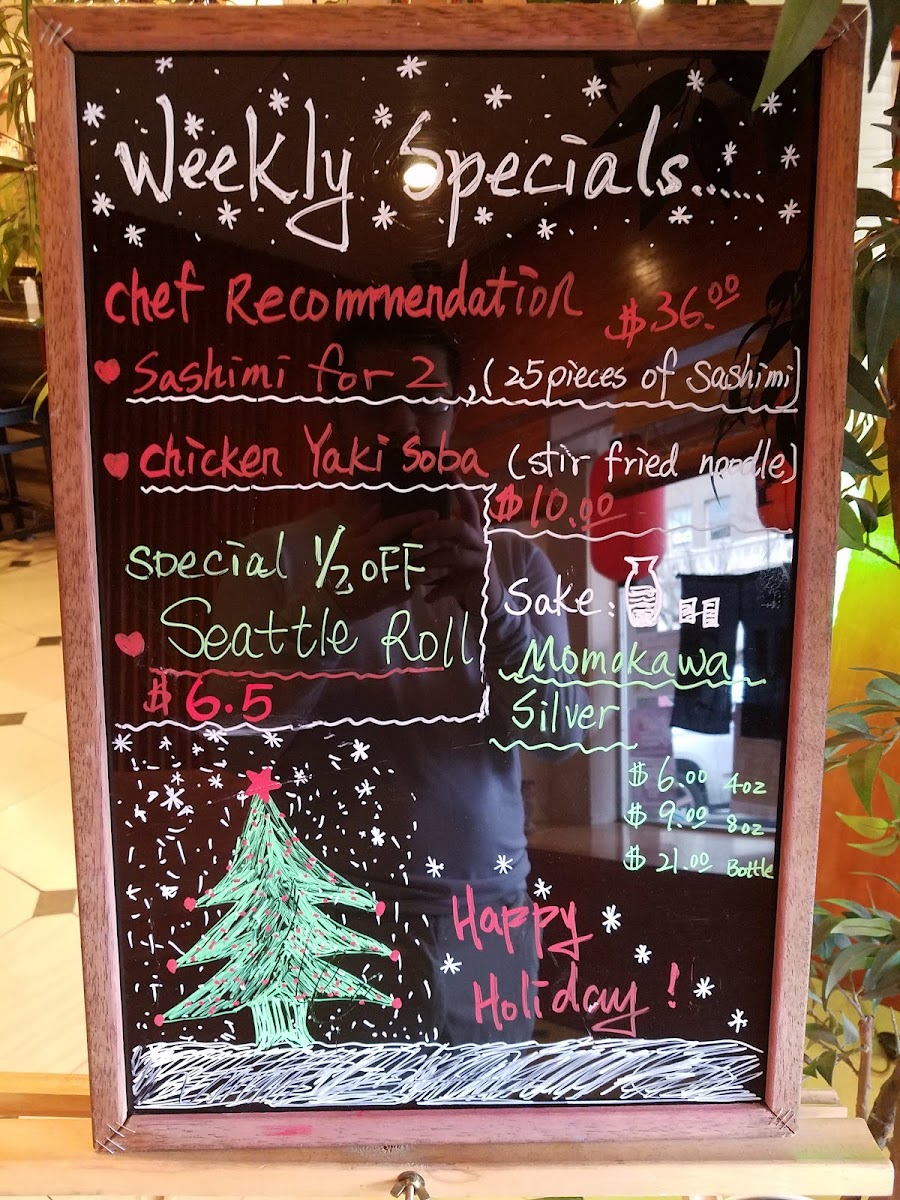 Weekly Specials......
Chef Recommendation
$36.00
Sashimi for 2, (25 pieces of Sashimi)
Chicken Yaki Soba (stir fried noodle)
$10.00
Special 1/2 OFF
Seattle Roll
$6.5
Sake:
Momokawa
Silver
$6.00 4oz
$9.00 8oz
$21.00 Bottle
Happy
Holiday!